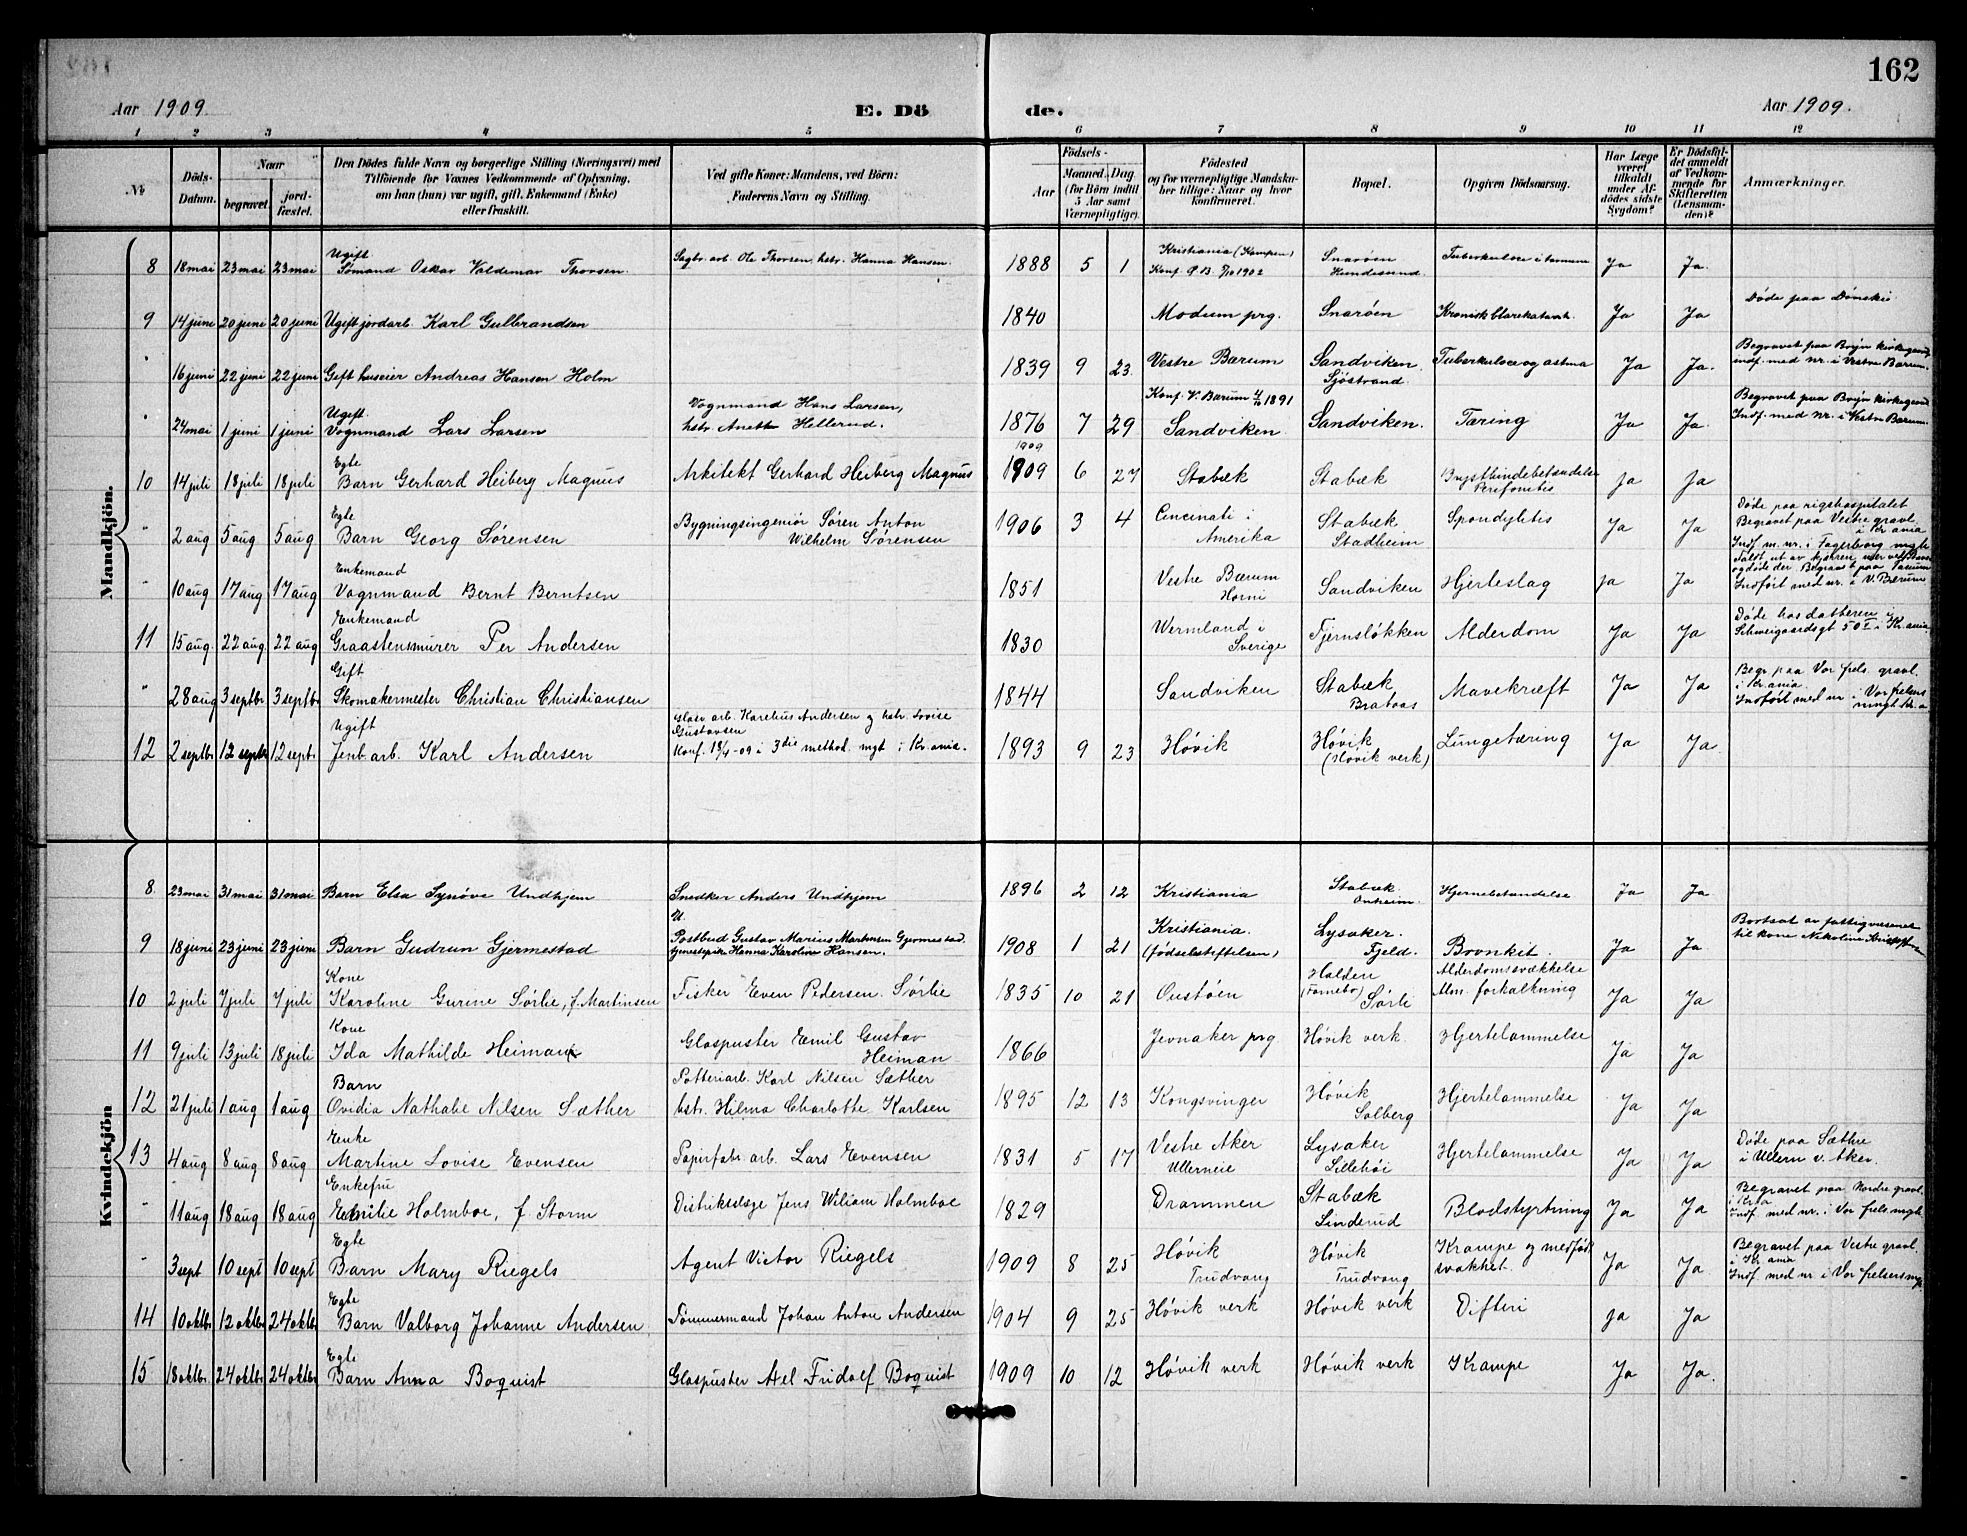 162
Aar 1909
E. Dö de.
Aar 1909.
1 2 3 4 5 6 7 8 9 10 11 12
No
Döds-Datum.
Naar
begravet.
jordfæstet.
Den Dödes fulde Navn og borgerlige Stilling (Næringsvei) med
Tilföiende for Voxnes Vedkommende af Oplysning,
om han (hun) var ugift, gift, Enkemand (Enke)
eller fraskilt.
Ved gifte Koner: Mandens, ved Börn:
Faderens Navn og Stilling.
Födsels-
Aar
Maaned. Dag.
(for Börn indtil
5 Aar samt
Værnepligtige).
Födested
og for værnepligtige Mandska-
ber tillige: Naar og hvor
konfirmeret.
Bopæl.
Opgiven Dödsaarsag.
Har Læge
været
tilkaldt
under Af-
dödes sidste
Sygdom?
Er Dödsfal-
det anmeldt
af Vedkom-
mende for
Skifteretten
(Lensman-
den)?
Anmærkninger.
Mandkjön.
8 18 mai 23 mai 23 mai Ugift Sømand Oskar Valdemar Thorsen. Sagbr. arb. Ole Thorsen, hstr. Hanna Hansen. 1888 5 1 Kristiania (Kampen) Konf. Ø.B. 2/10 1902 Snarøen Hundesund. Tuberkulose i tarmene Ja Ja.
9 14 juni 20 juni 20 juni Ugift jordarb. Karl Gulbrandsen 1840 Modum prg. Snarøen Kronisk blærekatarrh. Ja Ja Døde paa Dønski
" 16 juni 22 juni 22 juni Gift huseier Andreas Hansen Holm 1839 9 23 Vestre Bærum Sandviken Sjøstrand. Tuberkulose og astma Ja Ja. Begravet paa Bryn kirkegaard indf. med nr. i Vestre Bærum.
" 24 mai 1 juni 1 juni Ugift. Vognmand Lars Larsen Vognmand Hans Larsen, hstr. Anette Hellerud. 1876 7 29 Konf. V. Bærum 4/10 1891 Sandviken Sandviken. Tæring Ja Ja. Begravet paa Bryn kirkegaard Indf. med nr. i Vestre Bærum.
10 14 juli 18 juli 18 juli Egte Barn Gerhard Heiberg Magnus Arkitekt Gerhard Heiberg Magnus 1909 1909 6 27 Stabæk Stabæk Brysthindebetændelse Peritonitis Ja Ja
" 2 aug 5 aug 5 aug Egte Barn Georg Sørensen Bygningsingeniør Søren Anton Wilhelm Sørensen 1906 3 4 Cincinati i Amerika Stabæk Stadheim Spondylitis Ja Ja Døde paa rigshospitalet Begravet paa Vestre gravl. i Kr.ania Indf. m. nr. i Fagerborg mgt.
" 10 aug 17 aug 17 aug Enkemand Vognmand Bernt Berntsen 1851 Vestre Bærum Horni Sandviken Hjerteslag Ja Ja Faldt ut av kjærren og døde der Begravet paa Indført med nr. i V. Bærum
11 15 aug. 22 aug. 22 aug Enkemand Graastensmurer Per Andersen 1830 Wermland i Sverige Fjernsløkken Alderdom Ja Ja Døde hos datteren i Schweigaardsgt 50 I i Kr.ania
" 28 aug 3 septbr 3 septbr Gift Skomakermester Christian Christiansen 1844 Sandviken Stabæk Brataas Mavekræft Ja Ja Begr. paa Vor frels. gravl. i Kr.ania. Indført med nr i Vor frelsers mngt. Kr.a
12 2 septbr 12 septbr 12 sept. Ugift Jenb. arb. Karl Andersen Glasv. arb. Karelius Andersen og hstr. Lovise Gustavsen Konf. 18/4-09 i 3die method. mgt. i Kr.ania. 1893 9 23 Høvik Høvik (Høvik verk) Lungetæring Ja Ja.
Kvindekjön
8. 23 mai 31 mai 31 mai Barn Elsa Synøve Undhjem Snedker Anders Undhjem 1896 2 12 Kristiania Stabæk Onheim. Hjernebetændelse Ja Ja
9 18 juni 23 juni 23 juni Barn Gudrun Gjermestad U. Postbud Gustav Marius Martensen Gjermestad. tjenestepike Hanna Karoline Hansen. 1908 1 21 Kristiania. (fødselsstiftelsen) Lysaker. Fjeld. Bronkit. Ja Ja. Bortsat av fattigvæsenet til kone Nikoline
10 2 juli 7 juli 7 juli Kone Karoline Gurine Sørlie, f. Martinsen Fisker Even Pedersen Sørlie 1835 10 21 Oustøen Halden (Fornebo) Sørli Alderdomssvækkelse Alm. forkalkning Ja Ja
11 9 juli 13 juli 18 juli Kone Ida Mathilde Heiman Glaspuster Emil Gustav Heiman 1866 Jevnaker prg Høvik verk Hjertelammelse Ja Ja
12 21 juli 1 aug 1 aug Barn Ovidia Nathalie Nilsen Sæther Potteriarb. Karl Nilsen Sæther hstr. Hilma Charlotte Karlsen 1895 12 13 Kongsvinger Høvik Solberg Hjertelammelse Ja Ja
13 4 aug 8 aug 8 aug Enke Martine Lovise Evensen Papirfabr. arb. Lars Evensen 1831 5 17 Vestre Aker Ullerneie Lysaker Lillehøi Hjertelammelse Ja Ja Døde paa Sæthre i Ullern v. Aker.
" 11 aug 18 aug 18 aug Enkefru Emilie Holmboe, f. Storm Distrikslæge Jens Wiliam Holmboe 1829 Drammen Stabæk Linderud Blodstyrtning Ja Ja Begravet paa Nordre gravl. i Kr.a indf. med nr. i Vor frels. mgt.
" 3 sept 10 sept 10 sept Egte Barn Mary Riegels Agent Victor Riegels 1909 8 25 Høvik Trudvang Høvik Trudvang Krampe og medfødt svakhet Ja Ja. Begravet paa Vestre gravl. i Kr.ania Indf. med nr i Vor frelsers mgt.
14 10 oktbr. 12 oktbr. 24 oktbr. Egte Barn Valborg Johanne Andersen Tømmermand Johan Anton Andersen 1904 9 25 Høvik verk Høvik verk Difteri Ja Ja
15 18 oktbr. 24 oktbr. 24 oktbr. Egte Barn Anna Boquist Glaspuster Axel Fridolf Boquist 1909 10 12 Høvik verk Høvik verk Krampe Ja Ja.